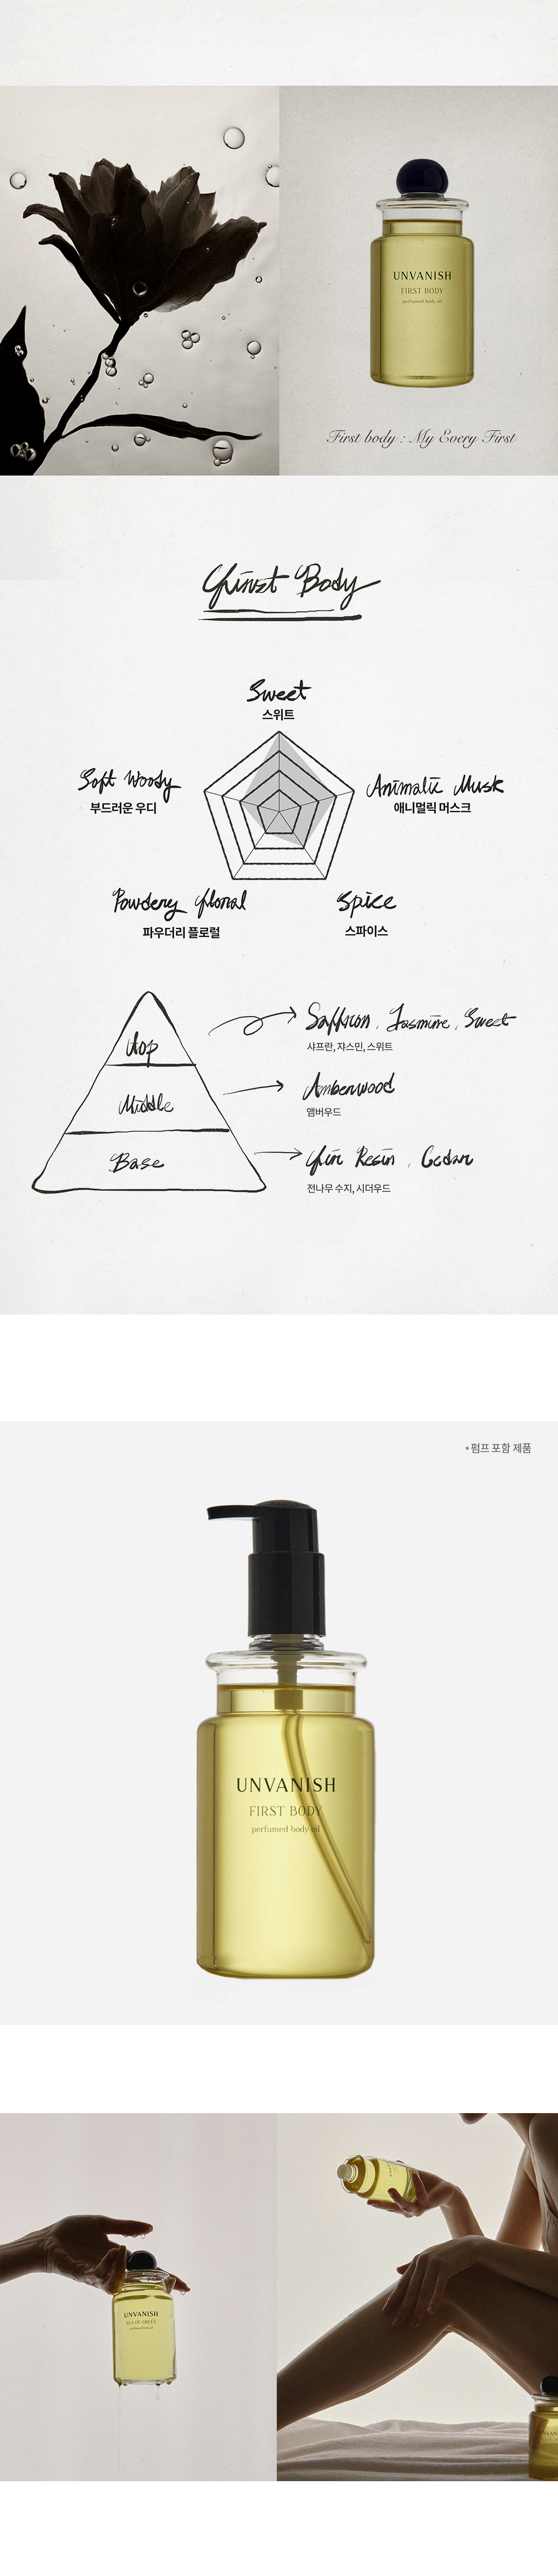 UNVANISH
FIRST BODY
perfumed body oil
First body : My Every First
First Body
Sweet
스위트
Soft Woody
부드러운 우디
Animalic Musk
애니멀릭 머스크
Powdery floral
파우더리 플로럴
Spice
스파이스
Top
Saffron, Jasmine, Sweet
샤프란, 쟈스민, 스위트
Middle
Amberwood
앰버우드
Base
Fir Resin, Cedar
전나무 수지, 시더우드
* 펌프 포함 제품
UNVANISH
FIRST BODY
perfumed body oil
UNVANISH
perfumed body oil